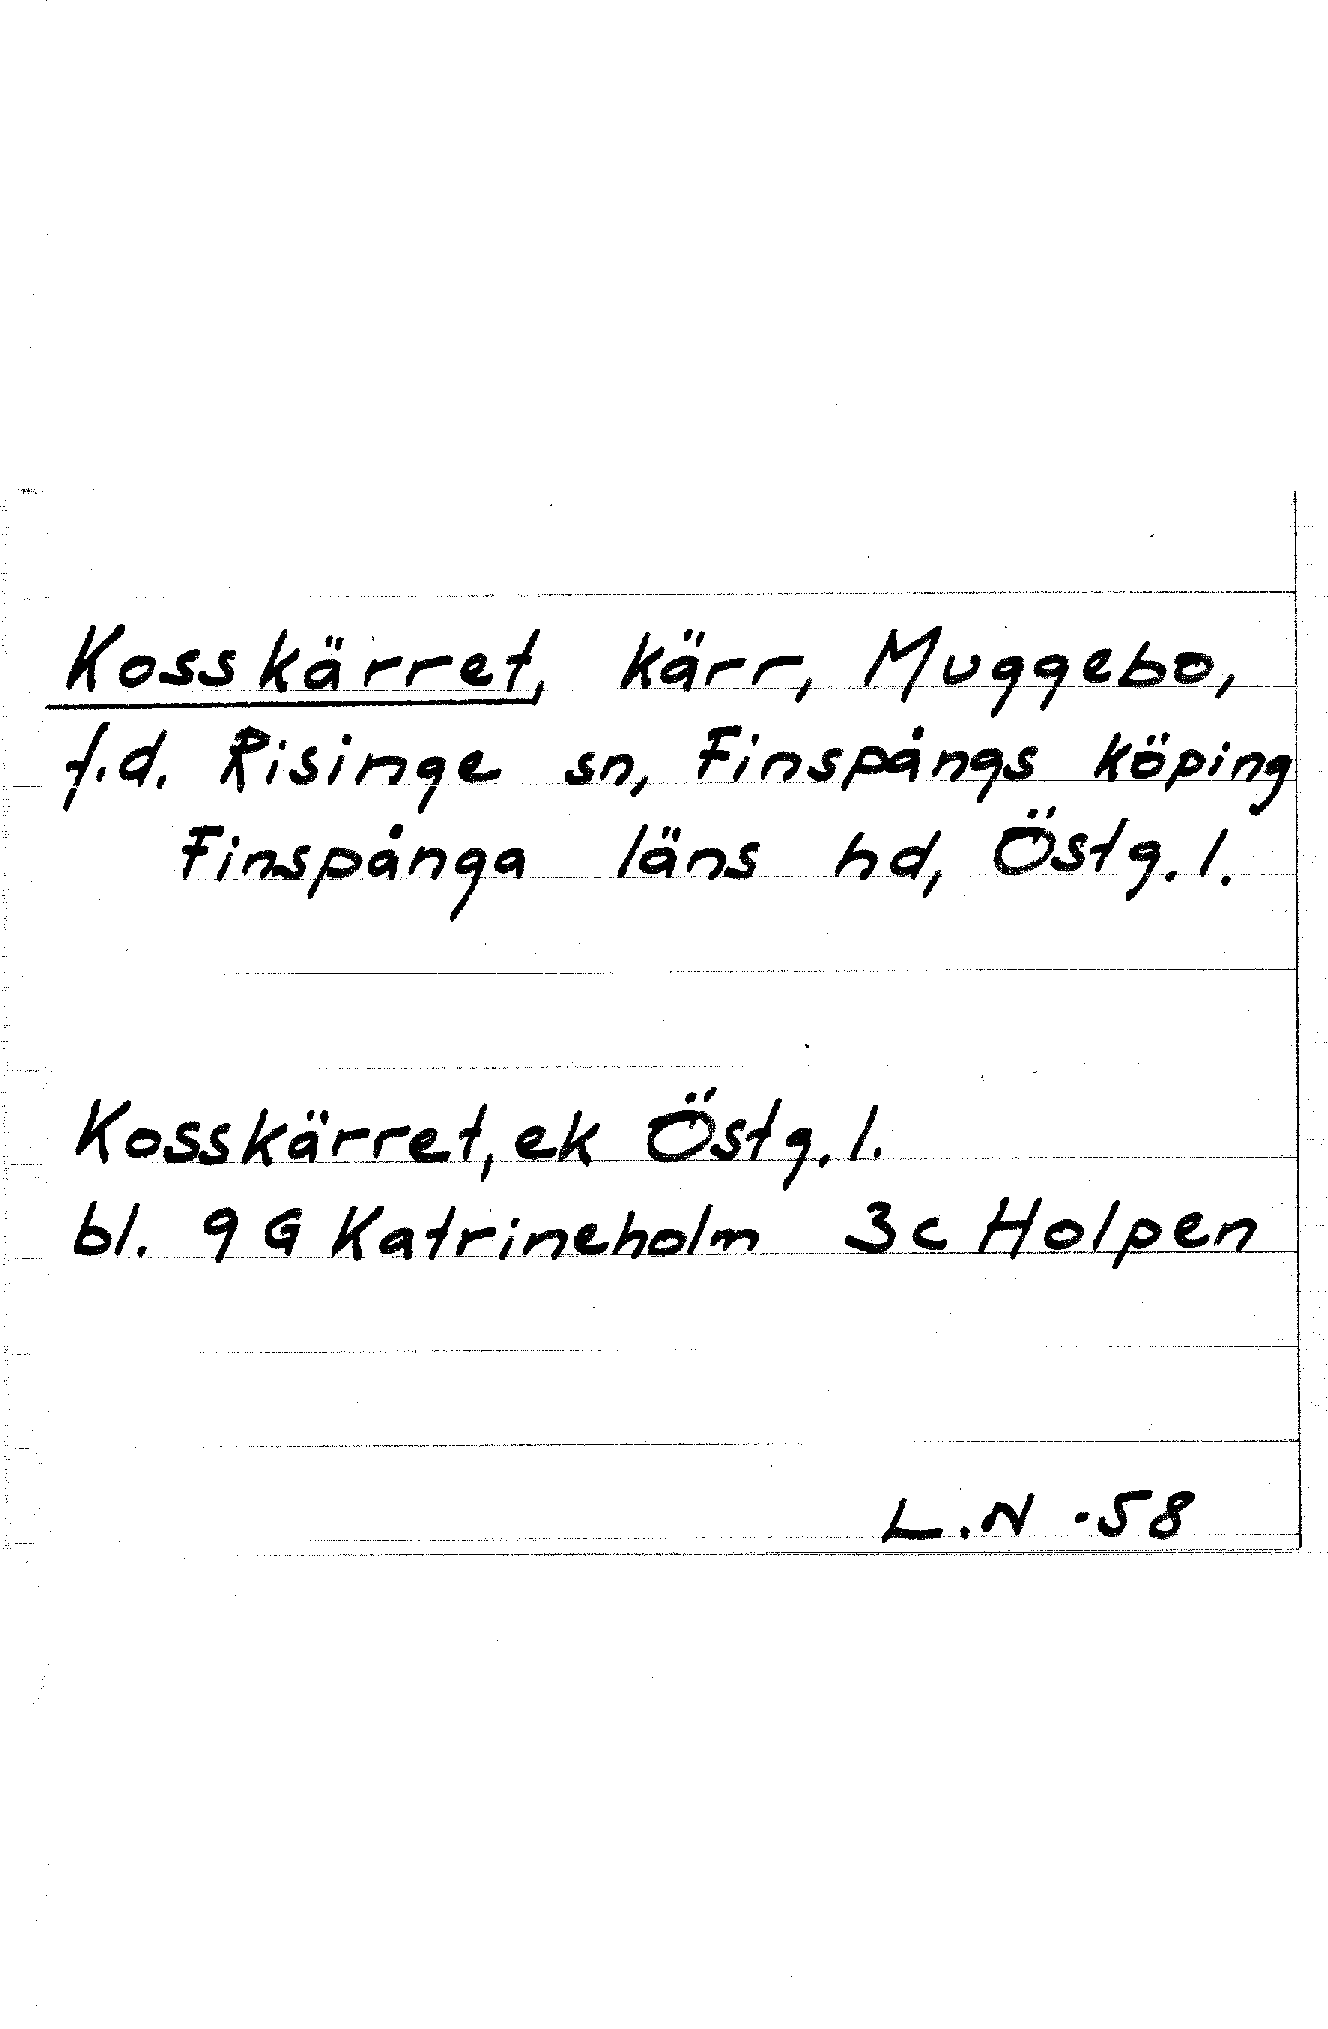 Kosskärret, kärr, Muggebo,
f.d. Risinge sn, Finspångs köping
Finspånga läns hd, Östg. l.
Kosskärret, ek Östg. l.
bl. 9 G Katrineholm 3c Holpen
L.N -58